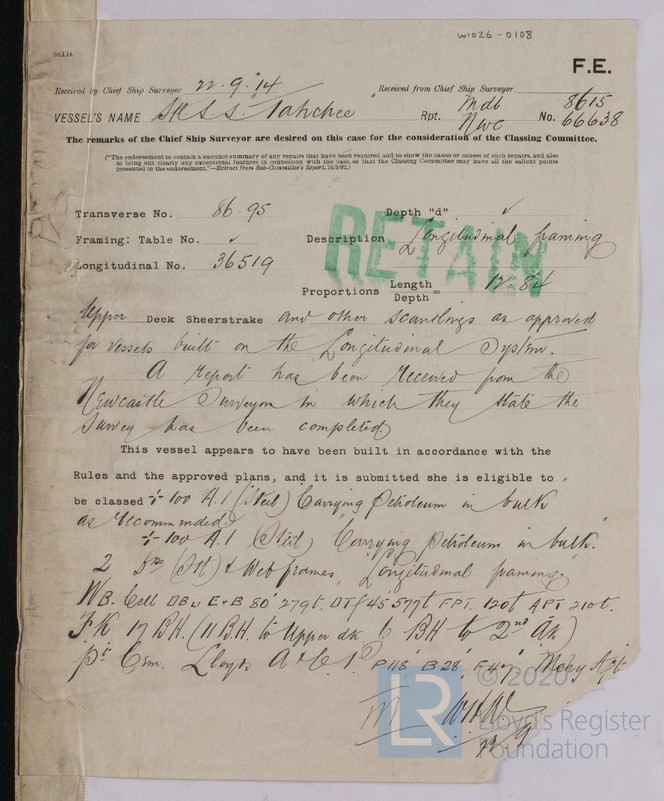 W1026-0108
F.E.
Received by Chief Ship Surveyor 22.9.14 Received from Chief Ship Surveyor
VESSEL'S NAME S.S. "Tahchee" Rpt. Mdb No. 8615
Nwc 66638
The remarks of the Chief Ship Surveyor are desired on this case for the consideration of the Classing Committee.
("The endorsement to contain a succinct summary of any repairs that have been required and to show the cause or causes of such repairs, and also
to bring out clearly any exceptional features in connection with the case, so that the Classing Committee may have all the salient points
presented in the endorsement."—Extract from Sub-Committee's Report, 24/5/92.)
Transverse No. 86.95 Depth "d" ✓
Framing: Table No. ✓ Description Longitudinal framing
Longitudinal No. 36519
RETAIN
Proportions Length = 12.84
Depth
Upper Deck Sheerstrake and other scantlings as approved
for vessels built on the Longitudinal System.
A report has been received from the
Newcastle Surveyors in which they state the
Survey has been completed.
This vessel appears to have been built in accordance with the
Rules and the approved plans, and it is submitted she is eligible to
be classed + 100 A.1 (Steel) "Carrying Petroleum in bulk"
as recommended.
+ 100 A.1 (Steel) "Carrying Petroleum in bulk."
2 Dks (Stl) & Web frames, "Longitudinal framing"
WB. Cell DBu E+B 80' 279t. DTf 45' 577t FPT. 120t APT 210t.
FK 17 BH. (11 B.H. to Upper dk 6 BH to 2nd dk)
Lloyds A & C P 118' B 28' F 47' Mchy Aft
22/9
© 2020
LR
Lloyd's Register
Foundation